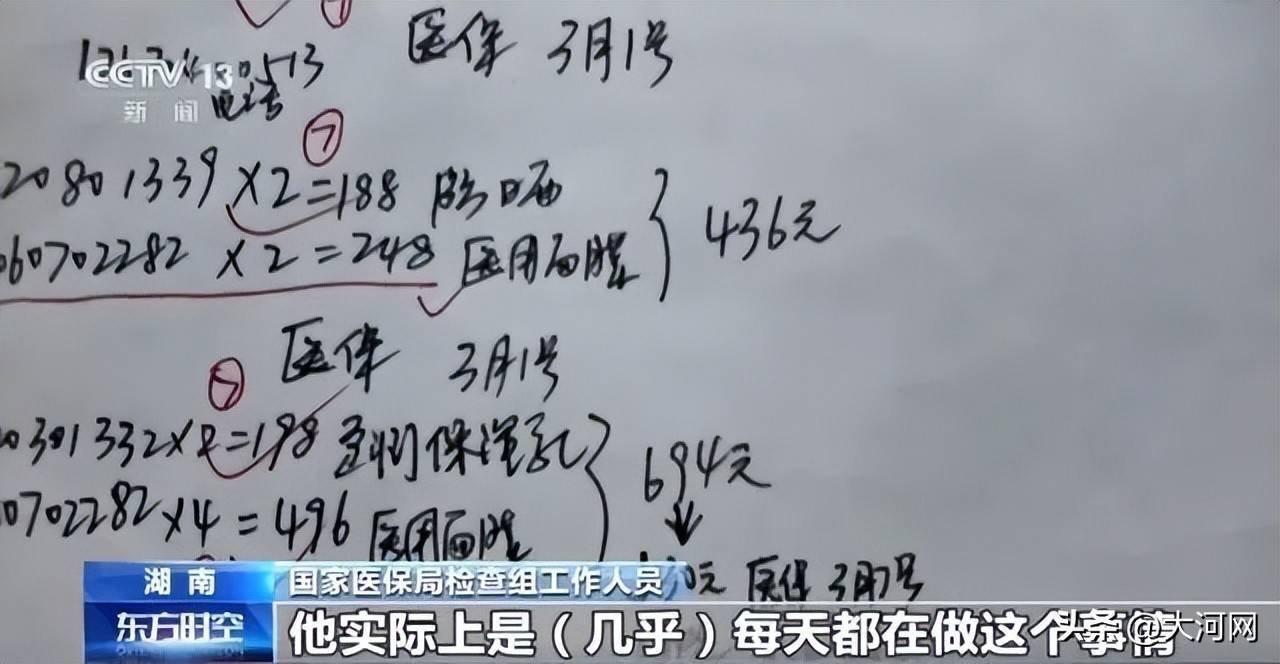 CCTV 13
新闻
医保 3月1号
电话
⑦
20801339 ×2=188 防晒
060702282 ×2=248 医用面膜
436元
医保 3月1号
⑦
0301332×2=198 至润保湿乳
0702282×4=496 医用面膜
694元
医保 3月7号
湖南 国家医保局检查组工作人员
东方时空 他实际上是（几乎）每天都在做这个事情
头条@大河网